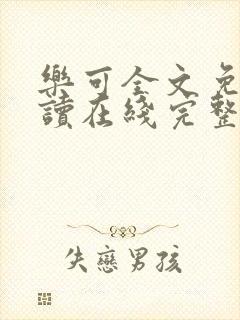 樂可全文免
讀在綫完整
失戀男孩